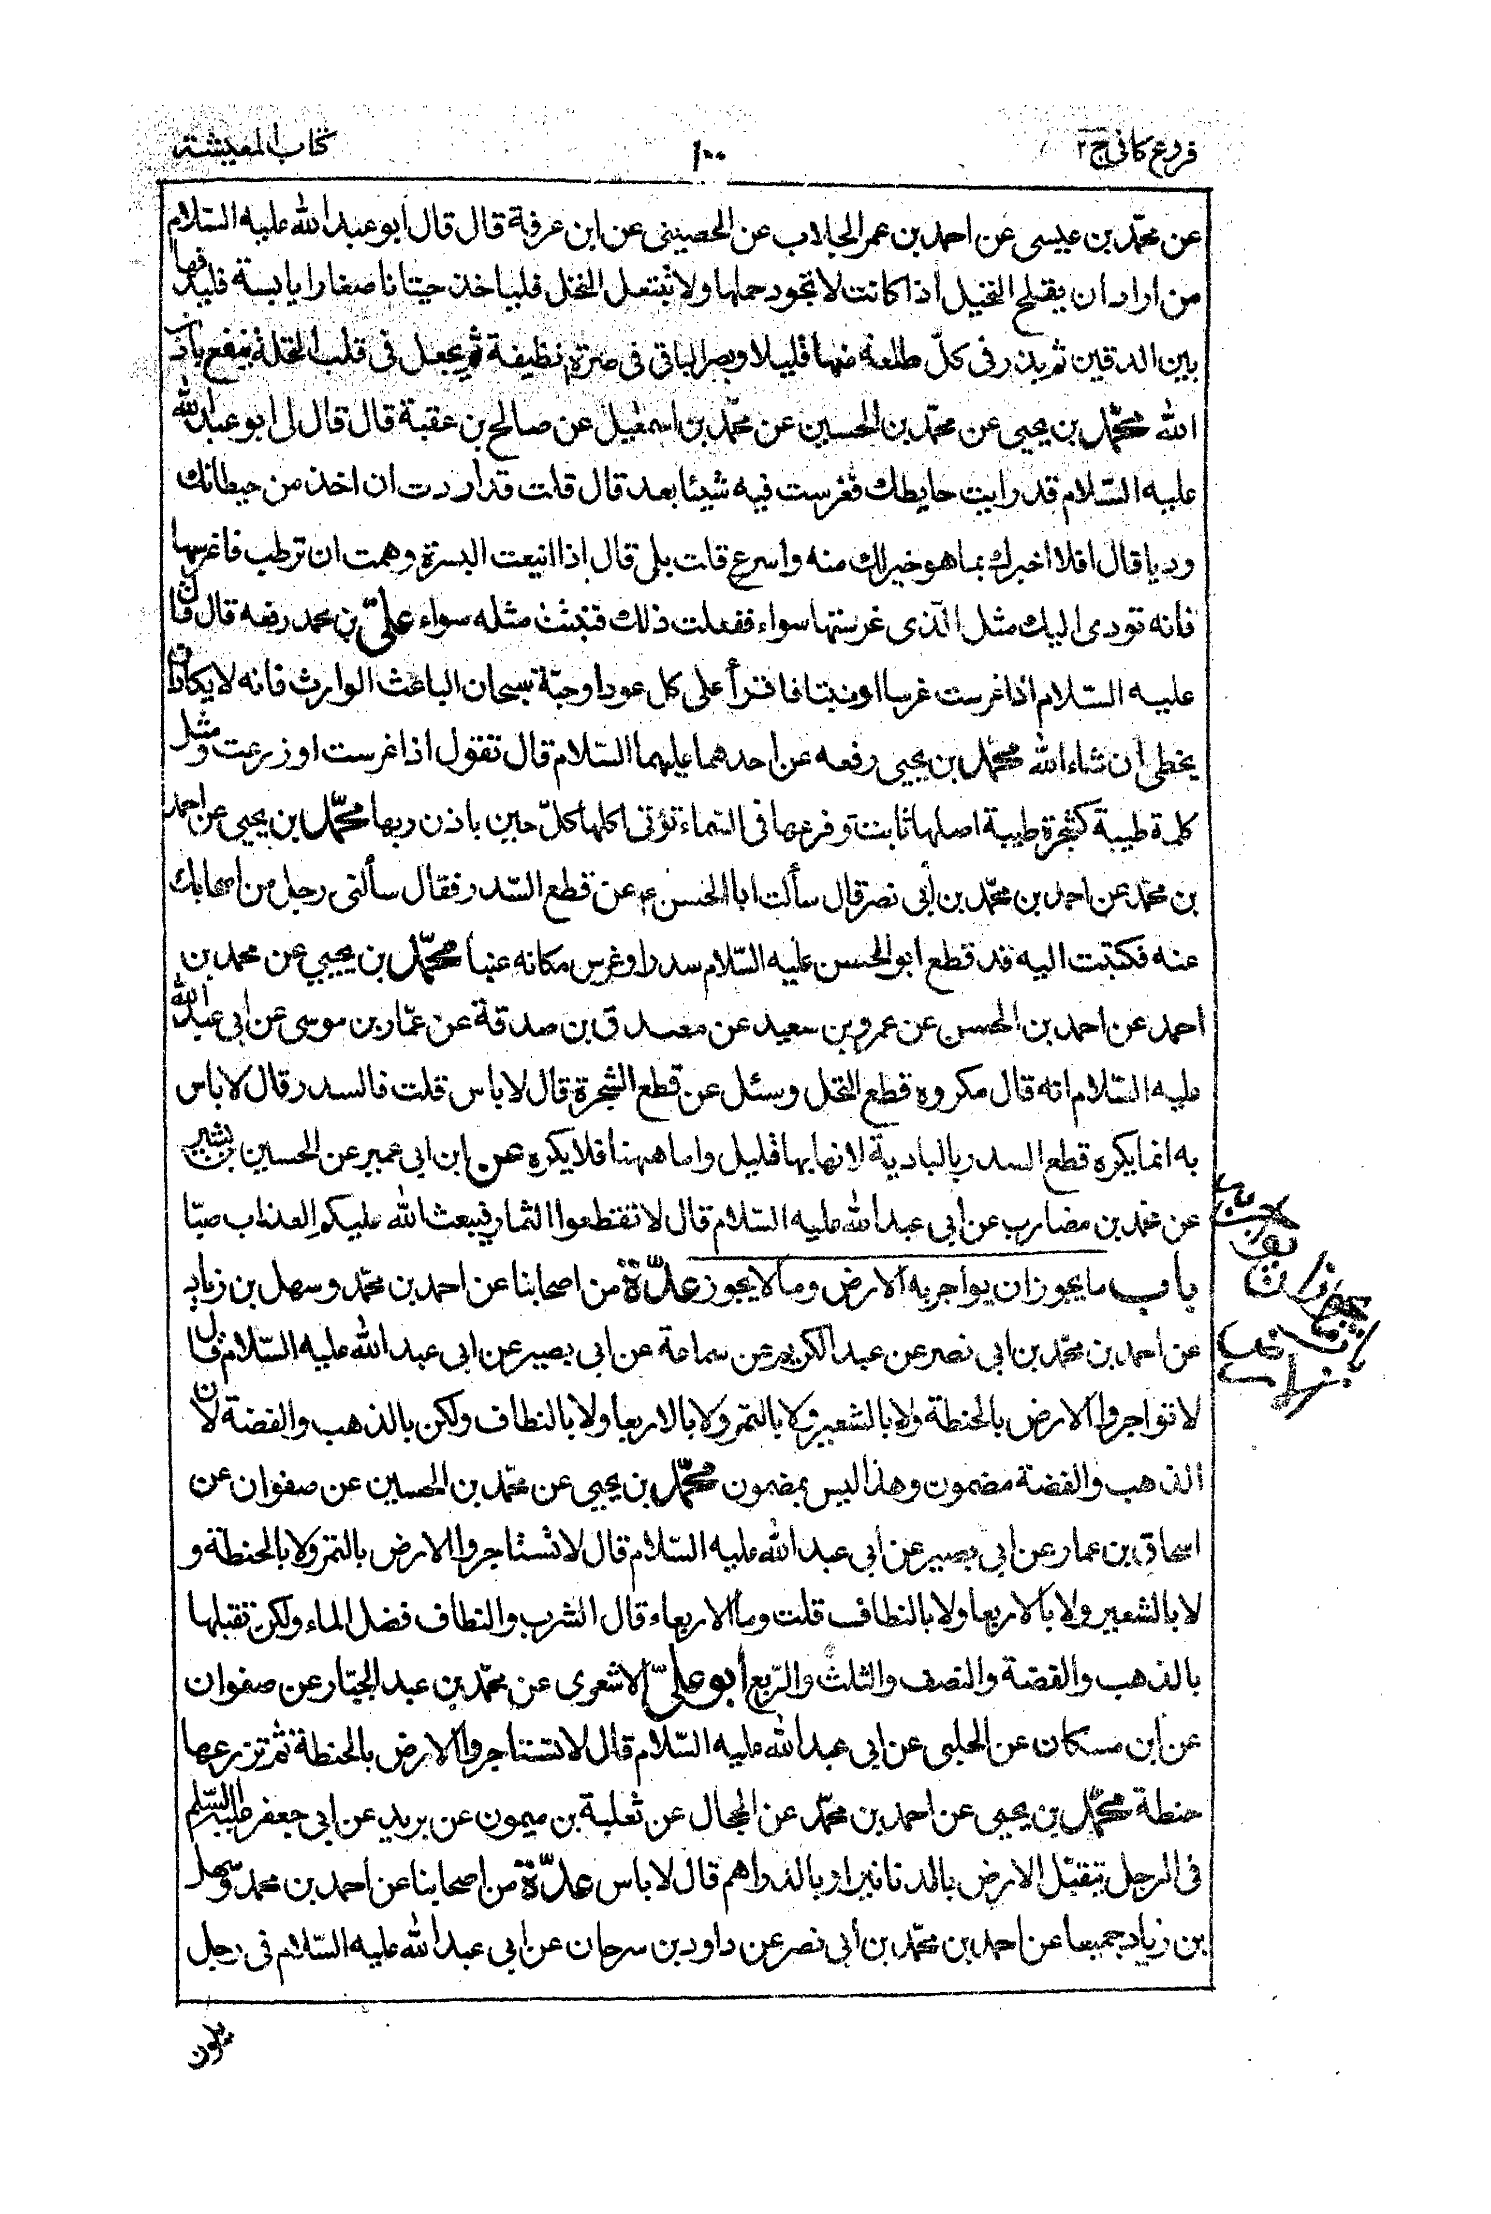 فروع كافى ج ٢
١٠٠
كتاب المعيشة
عن محمّد بن عيسى عن احمد بن عمر الجلاب عن الحصينى عن ابن عرفة قال قال ابو عبد الله عليه السّلام
من اراد ان يقلح النخيل اذا كانت لا تجود حملها ولا تتبعل النخل فلياخذ حيتانا صغارا يابسة فليدقها
بين الدقين ثم يذر فى كلّ طلعة منها قليلا ويصر الباقى فى صرة نظيفة ثم يجعل فى قلب النخلة ينفع باذن
الله محمّد بن يحيى عن محمّد بن الحسين عن محمّد بن اسمعيل عن صالح بن عقبة قال قال لى ابو عبد الله
عليه السّلام قد رايت حايطك فغرست فيه شيئا بعد قال قلت قد اردت ان اخذ من حيطانك
وديا قال افلا اخبرك بما هو خير لك منه واسرع قلت بلى قال اذا اينعت البسرة وهمت ان ترطب فاغرسها
فانه تودى اليك مثل الّذى غرستها سواء ففعلت ذلك فنبتت مثله سواء علىّ بن محمد رفعه قال قال
عليه السّلام اذا غرست غرسا او نبتا فاقرأ على كل عود او حبّة سبحان الباعث الوارث فانه لا يكاد ان
يخطى ان شاء الله محمّد بن يحيى رفعه عن احدهما عليهما السّلام قال تقول اذا غرست او زرعت ومثل
كلمة طيبة كشجرة طيبة اصلها ثابت وفرعها فى السّماء تؤتى اكلها كلّ حين باذن ربها محمّد بن يحيى عن احمد
بن محمّد عن احمد بن محمّد بن أبى نصر قال سألت ابا الحسن ع عن قطع السّدر فقال سألنى رجل من اصحابك
عنه فكتبت اليه قد قطع ابو الحسن عليه السّلام سدرا وغرس مكانه عنبا محمّد بن يحيى عن محمد بن
احمد عن احمد بن الحسن عن عمرو بن سعيد عن مصدق بن صدقة عن عمّار بن موسى عن ابى عبد الله
عليه السّلام انه قال مكروه قطع النخل وسئل عن قطع الشجرة قال لا باس قلت فالسدر قال لا باس
به انما يكره قطع السدر بالبادية لانها بها قليل واما ههنا فلا يكره عن ابن ابى عمير عن الحسين بن بشير
عن محمد بن مضارب عن أبى عبد الله عليه السّلام قال لا تقطعوا الثمار فيبعث الله عليكم العذاب صبّا
باب ما يجوز ان يواجر به الارض وما لا يجوز عدّة من اصحابنا عن احمد بن محمّد وسهل بن زياد
عن احمد بن محمّد بن ابى نصر عن عبد الكريم عن سماعة عن ابى بصير عن ابى عبد الله عليه السّلام قال
لا تواجروا الارض بالحنطة ولا بالشعير ولا بالتمر ولا بالاربعا ولا بالنطاف ولكن بالذهب والفضة لان
الذهب والفضة مضمون وهذا ليس بمضمون محمّد بن يحيى عن محمّد بن الحسين عن صفوان عن
اسحاق بن عمار عن ابى بصير عن أبى عبد الله عليه السّلام قال لا تستاجروا الارض بالتمر ولا بالحنطة و
لا بالشعير ولا بالاربعا ولا بالنطاف قلت وما الاربعاء قال الشرب والنطاف فضل الماء ولكن تقبلها
بالذهب والفضة والنصف والثلث والرّبع أبو علىّ الاشعرى عن محمّد بن عبد الجبّار عن صفوان
عن ابن مسكان عن الحلبى عن ابى عبد الله عليه السّلام قال لا تستاجروا الارض بالحنطة ثم تزرعها
حنطة محمّد بن يحيى عن احمد بن محمّد عن الحجال عن ثعلبة بن ميمون عن بريد عن ابى جعفر عليه السّلم
فى الرجل يتقبّل الارض بالدنانير او بالدراهم قال لا باس عدّة من اصحابنا عن احمد بن محمد وسهل
بن زياد جميعا عن احمد بن محمّد بن أبى نصر عن داود بن سرحان عن ابى عبد الله عليه السّلام فى رجل